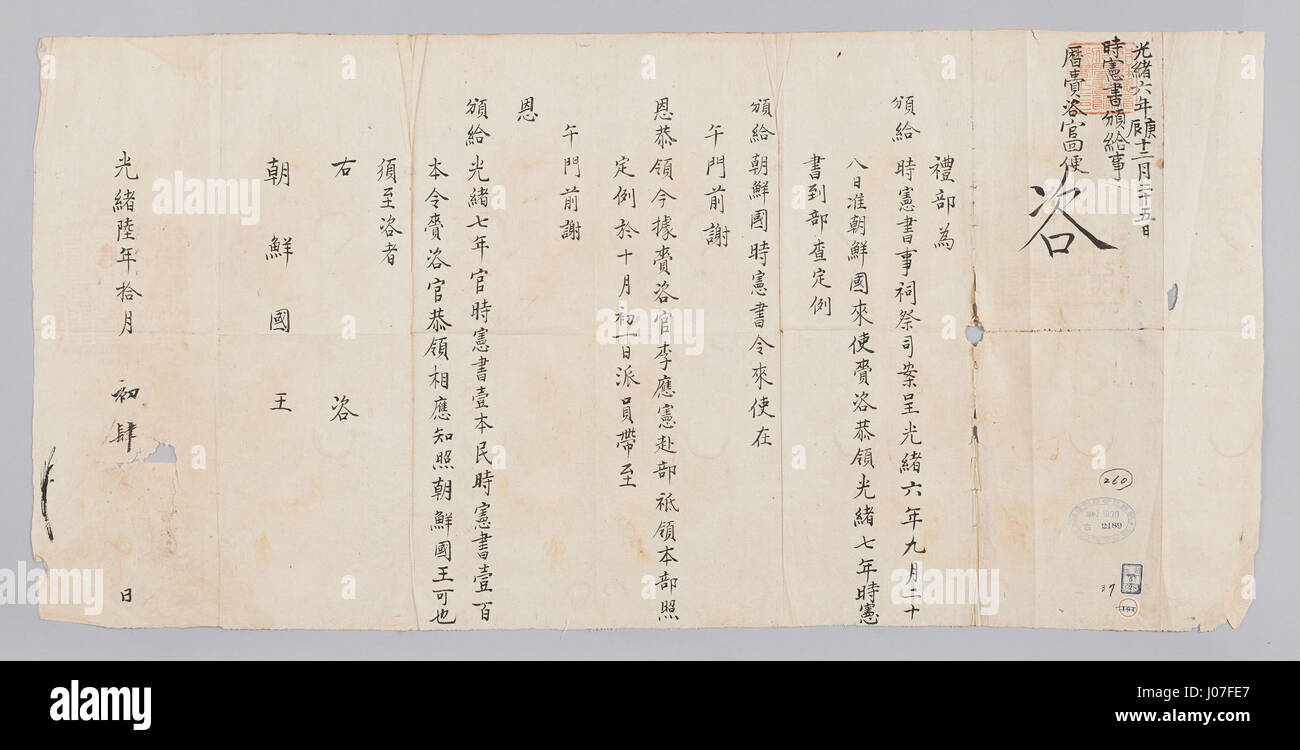 光緒六年庚辰十二月二十五日
時憲書頒給事
曆賫咨官回便
咨
禮部為
頒給時憲書事祠祭司案呈光緒六年九月二十
八日准朝鮮國來使賫咨恭領光緒七年時憲
書到部查定例
頒給朝鮮國時憲書令來使在
午門前謝
恩恭領今據賫咨官李應憲赴部祗領本部照
定例於十月初一日派員帶至
午門前謝
恩
頒給光緒七年官時憲書壹本民時憲書壹百
本令賫咨官恭領相應知照朝鮮國王可也
須至咨者
右咨
朝鮮國王
光緒陸年拾月初肆日
260
2189
37
alamy
Image ID: J07FE7
www.alamy.com